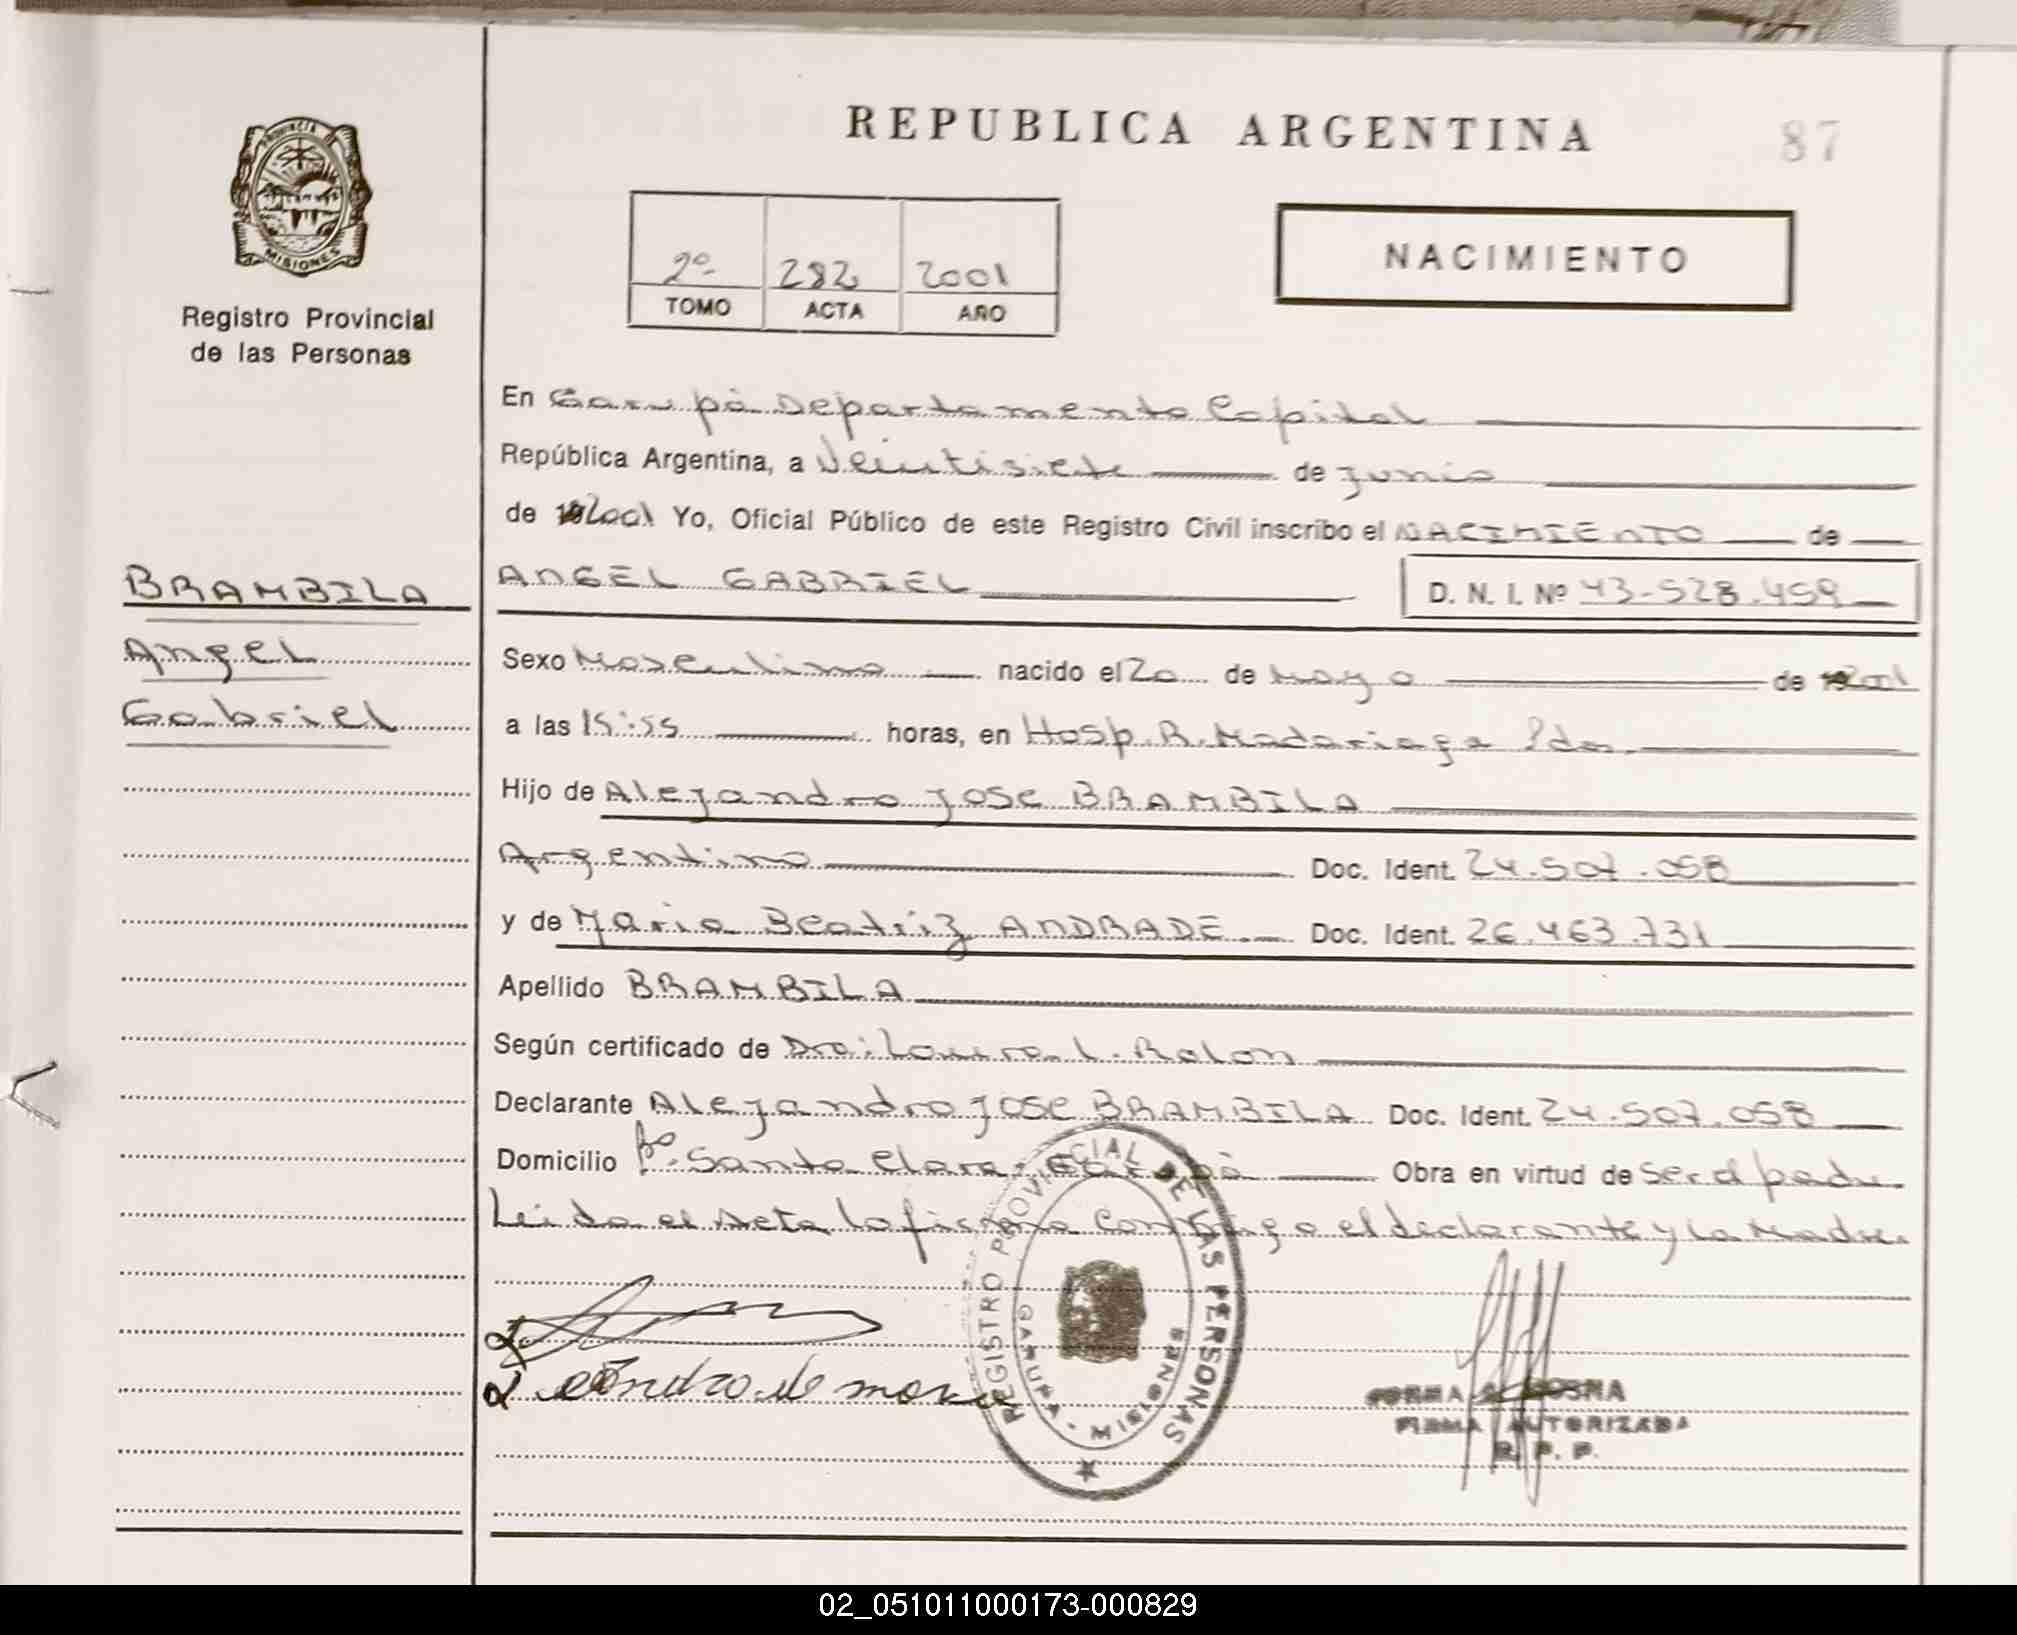 REPUBLICA ARGENTINA
87
PROVINCIA DE
MISIONES
Registro Provincial
de las Personas
2º 282 2001
TOMO ACTA AÑO
NACIMIENTO
En Garupá Departamento Capital
República Argentina, a Veintisiete de junio
de 2001 Yo, Oficial Público de este Registro Civil inscribo el NACIMIENTO de
BRAMBILA
Angel
Gabriel
ANGEL GABRIEL D. N. I. Nº 43.528.459
Sexo Masculino nacido el 20 de Mayo de 2001
a las 15:55 horas, en Hosp. R. Madariaga Pdas.
Hijo de Alejandro Jose BRAMBILA
Argentino Doc. Ident. 24.507.058
y de Maria Beatriz ANDRADE Doc. Ident. 26.463.731
Apellido BRAMBILA
Según certificado de Dra: Laura L. Rolon
Declarante Alejandro Jose BRAMBILA Doc. Ident. 24.507.058
Domicilio Bº Santa Clara - Garupá Obra en virtud de ser el padre.
Leida el Acta la firma conmigo el declarante y la Madre.
REGISTRO PROVINCIAL DE LAS PERSONAS
GARUPA - MISIONES
FIRMA AUTORIZADA
R. P. P.
02_051011000173-000829